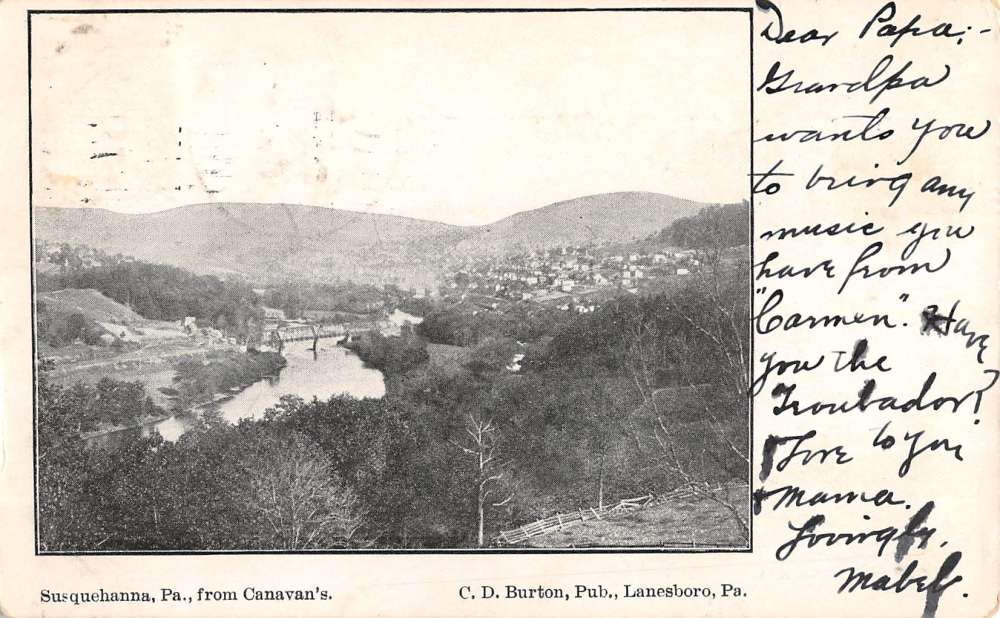 Dear Papa;-
Grandpa
wants you
to bring any
music you
have from
"Carmen". Have
you the
Troubador?
Love to you
Mama.
Lovingly,
Mabel.
Susquehanna, Pa., from Canavan's.
C. D. Burton, Pub., Lanesboro, Pa.